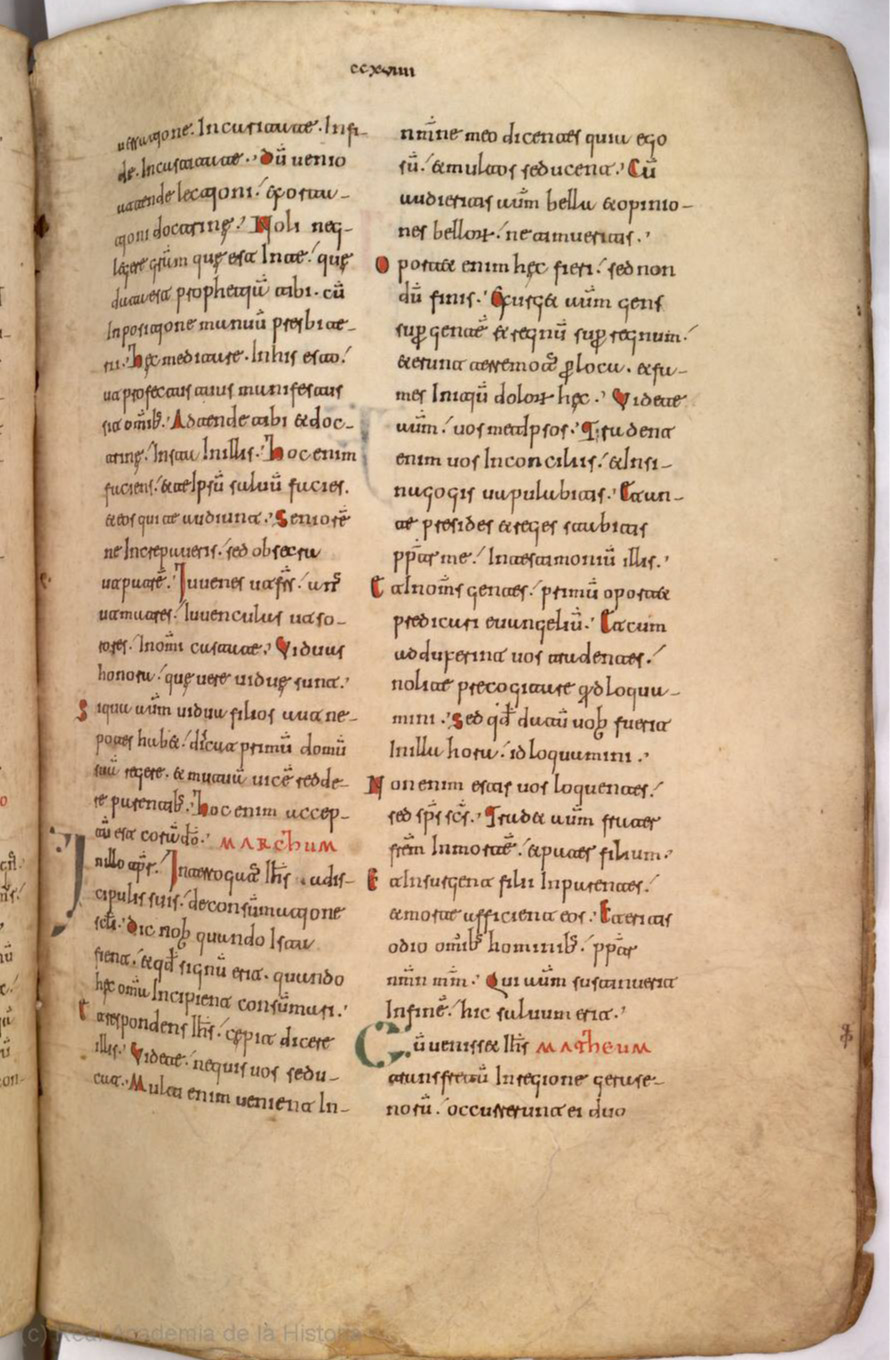 ccxviiii
uersatione. In caritate. In fi-
de. In castitate. Dū uenio
adtende lectioni. exorta-
tioni doctrinę. Noli neg-
legere grām quę est In te. quę
data est prophetiā tibi. cū
Inpositione manuū presbite-
rii. Hęc meditare. In his esto.
ut profectus tuus manifestus
sit omīb;. Adtende tibi et doc-
trinę. Insta In illis. Hoc enim
faciens. et te Ipsū saluū facies.
et eos qui te audiunt. Seniorē
ne Increpaueris. sed obsecra
ut patrē. Iuuenes ut frs̄.
ut matres. Iuuenculas ut so-
rores. In omī castitate. Viduas
honora. quę uere uiduę sunt.
Siqua aūm uidua filios aut ne-
potes habet. discat primū domū
suā regere. et mutuā uicē redde-
re parentib;. Hoc enim accep-
tū est corā dō. MARCHUM
In illo tpr̄. Ihs̄ a dis-
cipulis suis. de consūmatione
scli. Dic nob quando Ista
fient. et qd̄ signū erit. quando
hęc omīa Incipient consūmari.
Et respondens Ihs̄. cępit dicere
illis. Videte. nequis uos sedu-
cat. Multi enim uenient In-
nmīne meo dicentes quia ego
sū. et multos seducent. Cū
audieritis aūm bella et opinio-
nes bellorum. ne timueritis.
Oportet enim hęc fieri. sed non
dū finis. Exurget aūm gens
super gentē et regnū super regnum.
et erunt terremotꝰ per loca. et fa-
mes Initiū dolorum hęc. Videte
aūm. uos metIpsos. Tradent
enim uos In conciliis. et In si-
nagogis uapulabitis. Et an-
te presides et reges stabitis
ppter me. In testimoniū illis.
Et al nom̄s gentes. primū oportet
predicari euangeliū. Et cum
adduxerint uos tradentes.
nolite precogitare qd loqua-
mini. Sed qd̄ datū uob fuerit
In illa hora. id loquumini.
Non enim estis uos loquentes.
sed sp̄s sc̄s. Tradet aūm frater
frēm In mortē. et pater filium.
Et Insurgent filii In parentes.
et morte afficient eos. Et eritis
odio omīb; hominib;. ppter
nmn̄ mm̄. Qui aūm sustinuerit
In finē. hic saluum erit.
Cū uenisset Ihs̄ MATHEUM
transfretū In regione gerase-
norū. occurrerunt ei duo
(c) Real Academia de la Historia